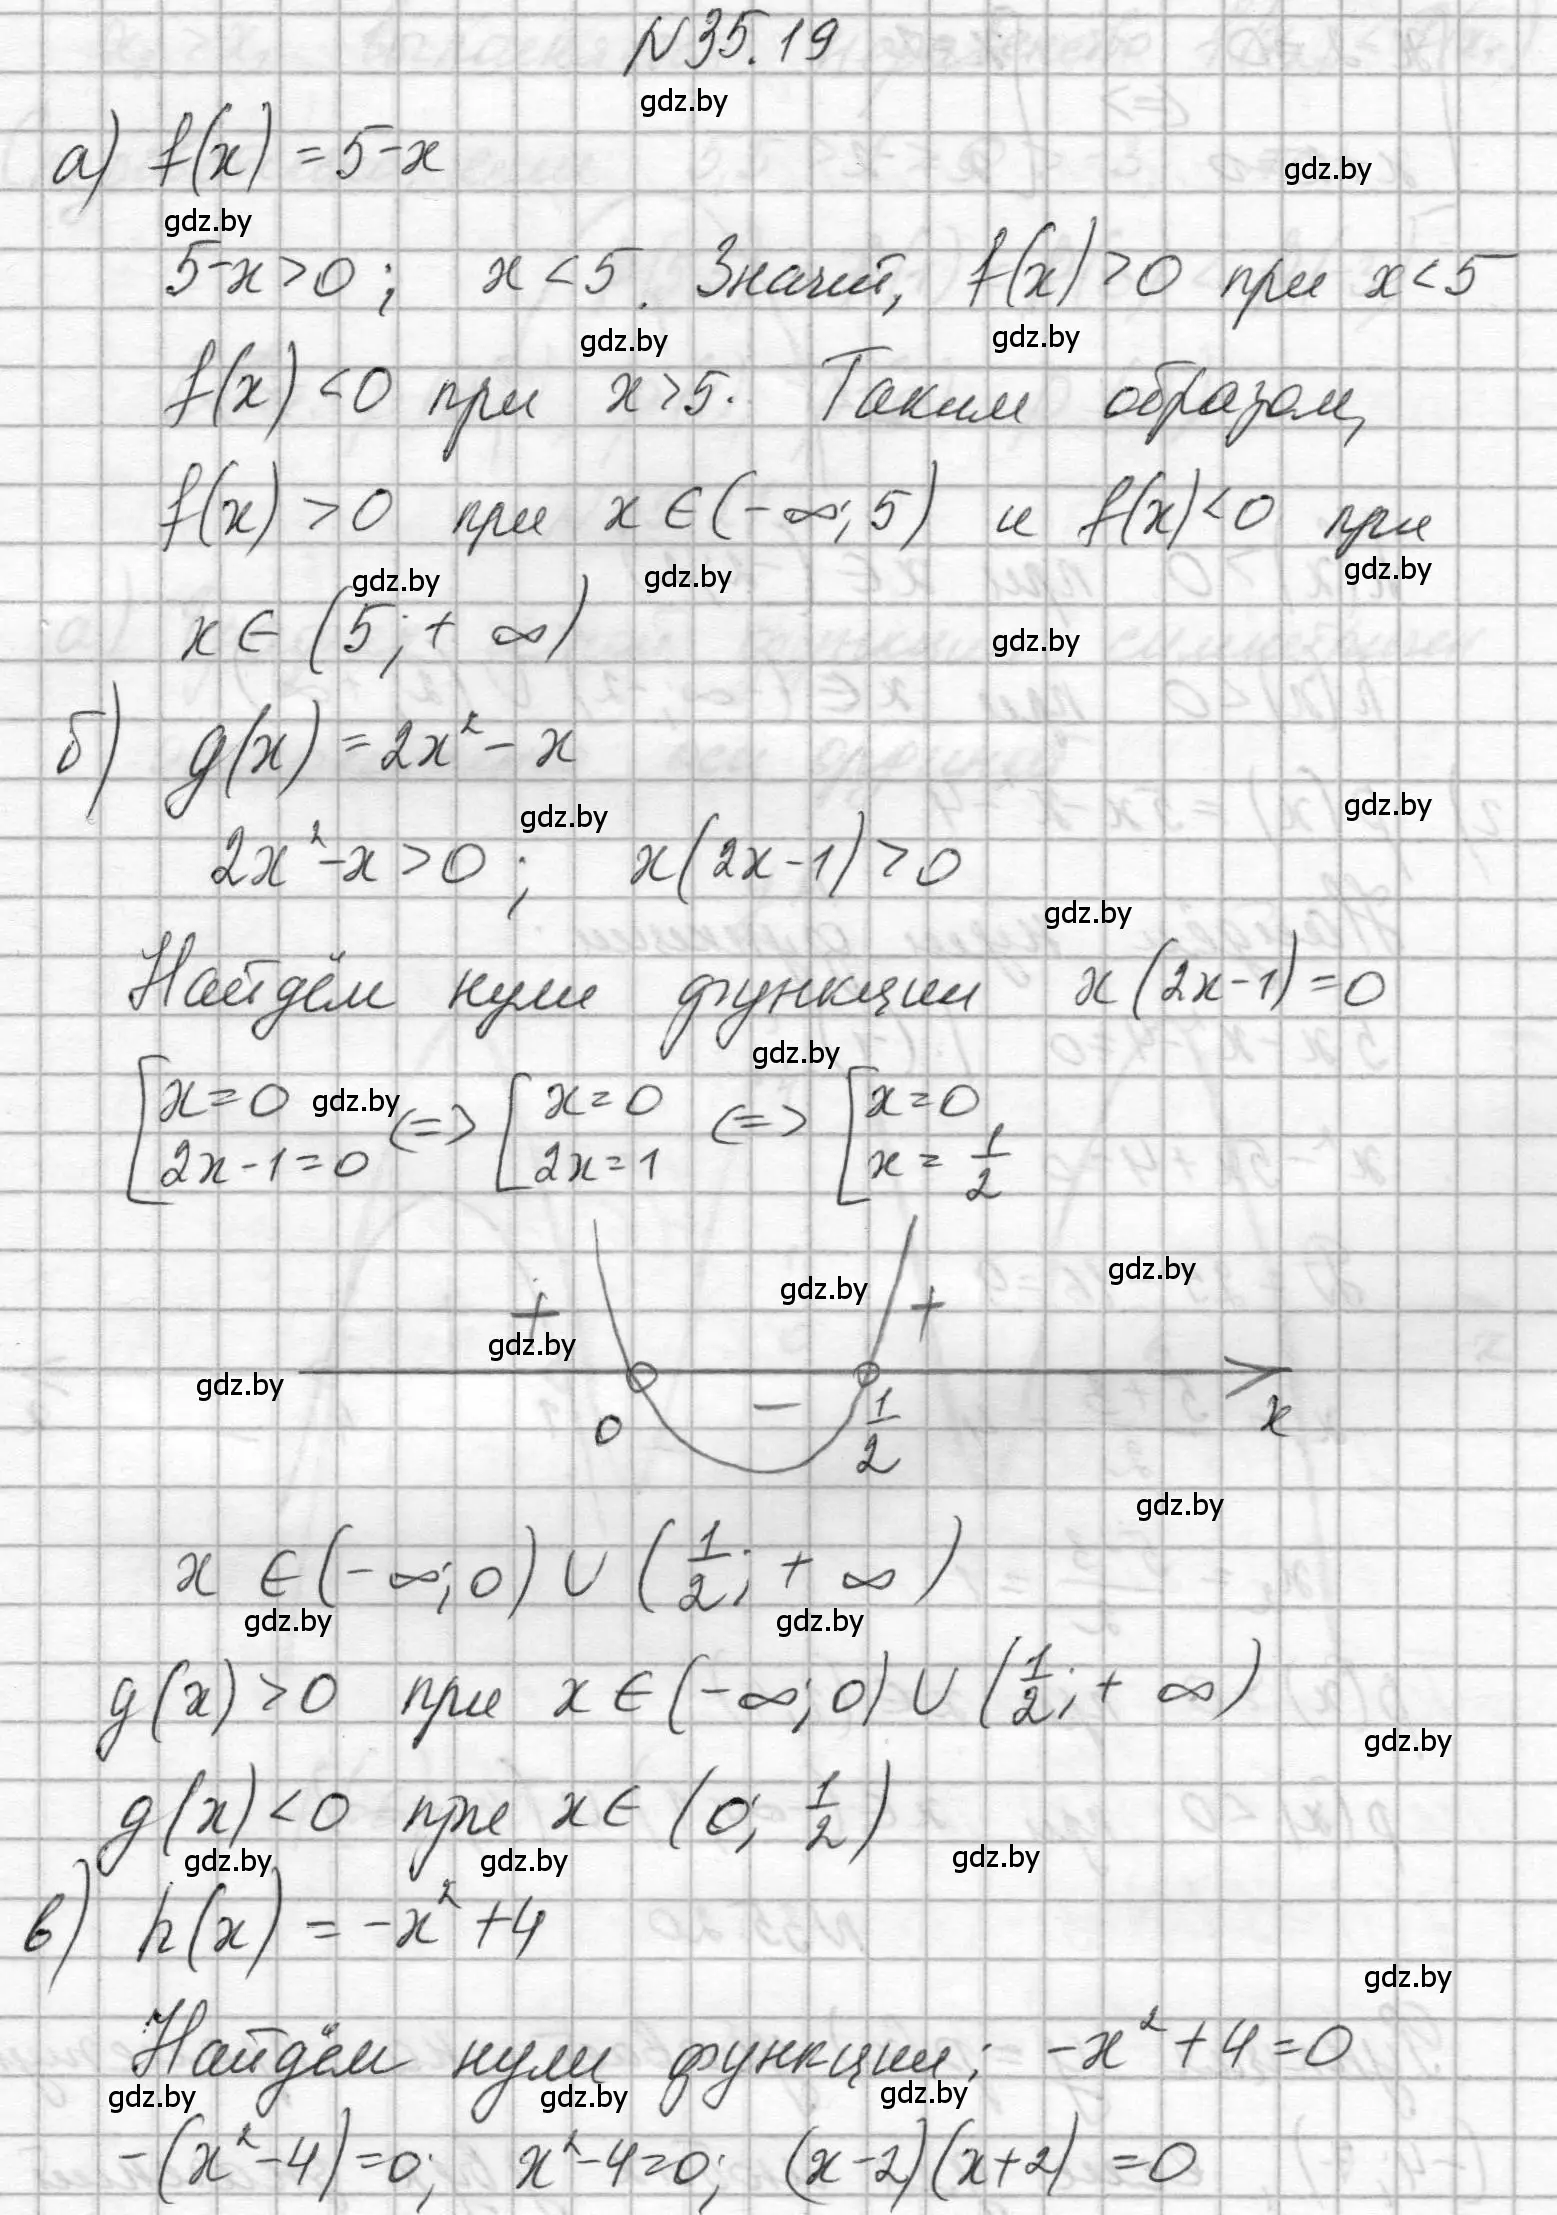 N35.19
gdz.by
а) f(x) = 5-x
gdz.by
gdz.by
5-x>0; x<5. Значит, f(x)>0 при x<5
gdz.by gdz.by
f(x)<0 при x>5. Таким образом,
f(x) >0 при x∈(-∞; 5) и f(x)<0 при
gdz.by gdz.by gdz.by
x∈ (5; + ∞)
gdz.by
б) g(x) = 2x² - x
gdz.by gdz.by
2x²-x>0; x(2x-1)>0
gdz.by
Найдём нули функции x(2x-1)=0
gdz.by
[x=0 <=> [x=0 <=> [x=0
gdz.by
2x-1=0 2x=1 x= 1/2
gdz.by gdz.by
+ +
gdz.by
gdz.by
0 - 1/2 x
gdz.by
x ∈(-∞; 0) ∪ (1/2; + ∞)
gdz.by gdz.by
g(x) >0 при x∈(-∞; 0) ∪ (1/2; + ∞)
gdz.by
g(x) <0 при x∈ (0; 1/2)
gdz.by gdz.by gdz.by
в) h(x) = -x² +4
gdz.by
Найдём нули функции: -x²+4=0
gdz.by gdz.by gdz.by
-(x²-4)=0; x²-4=0; (x-2)(x+2) =0